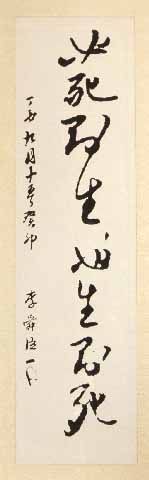 必死則生 必生則死
丁酉 九月 十五日 癸卯
李舜臣